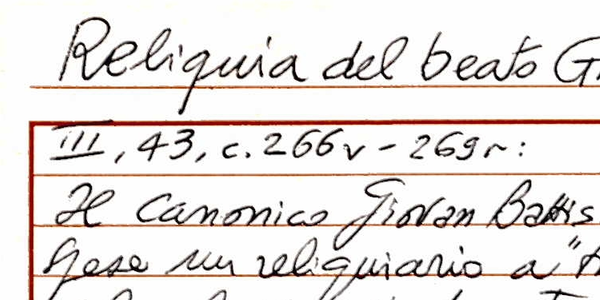 Reliquia del beato G
III, 43, c. 266v - 269r:
Il Canonico Giovan Battis
un reliquiario a "